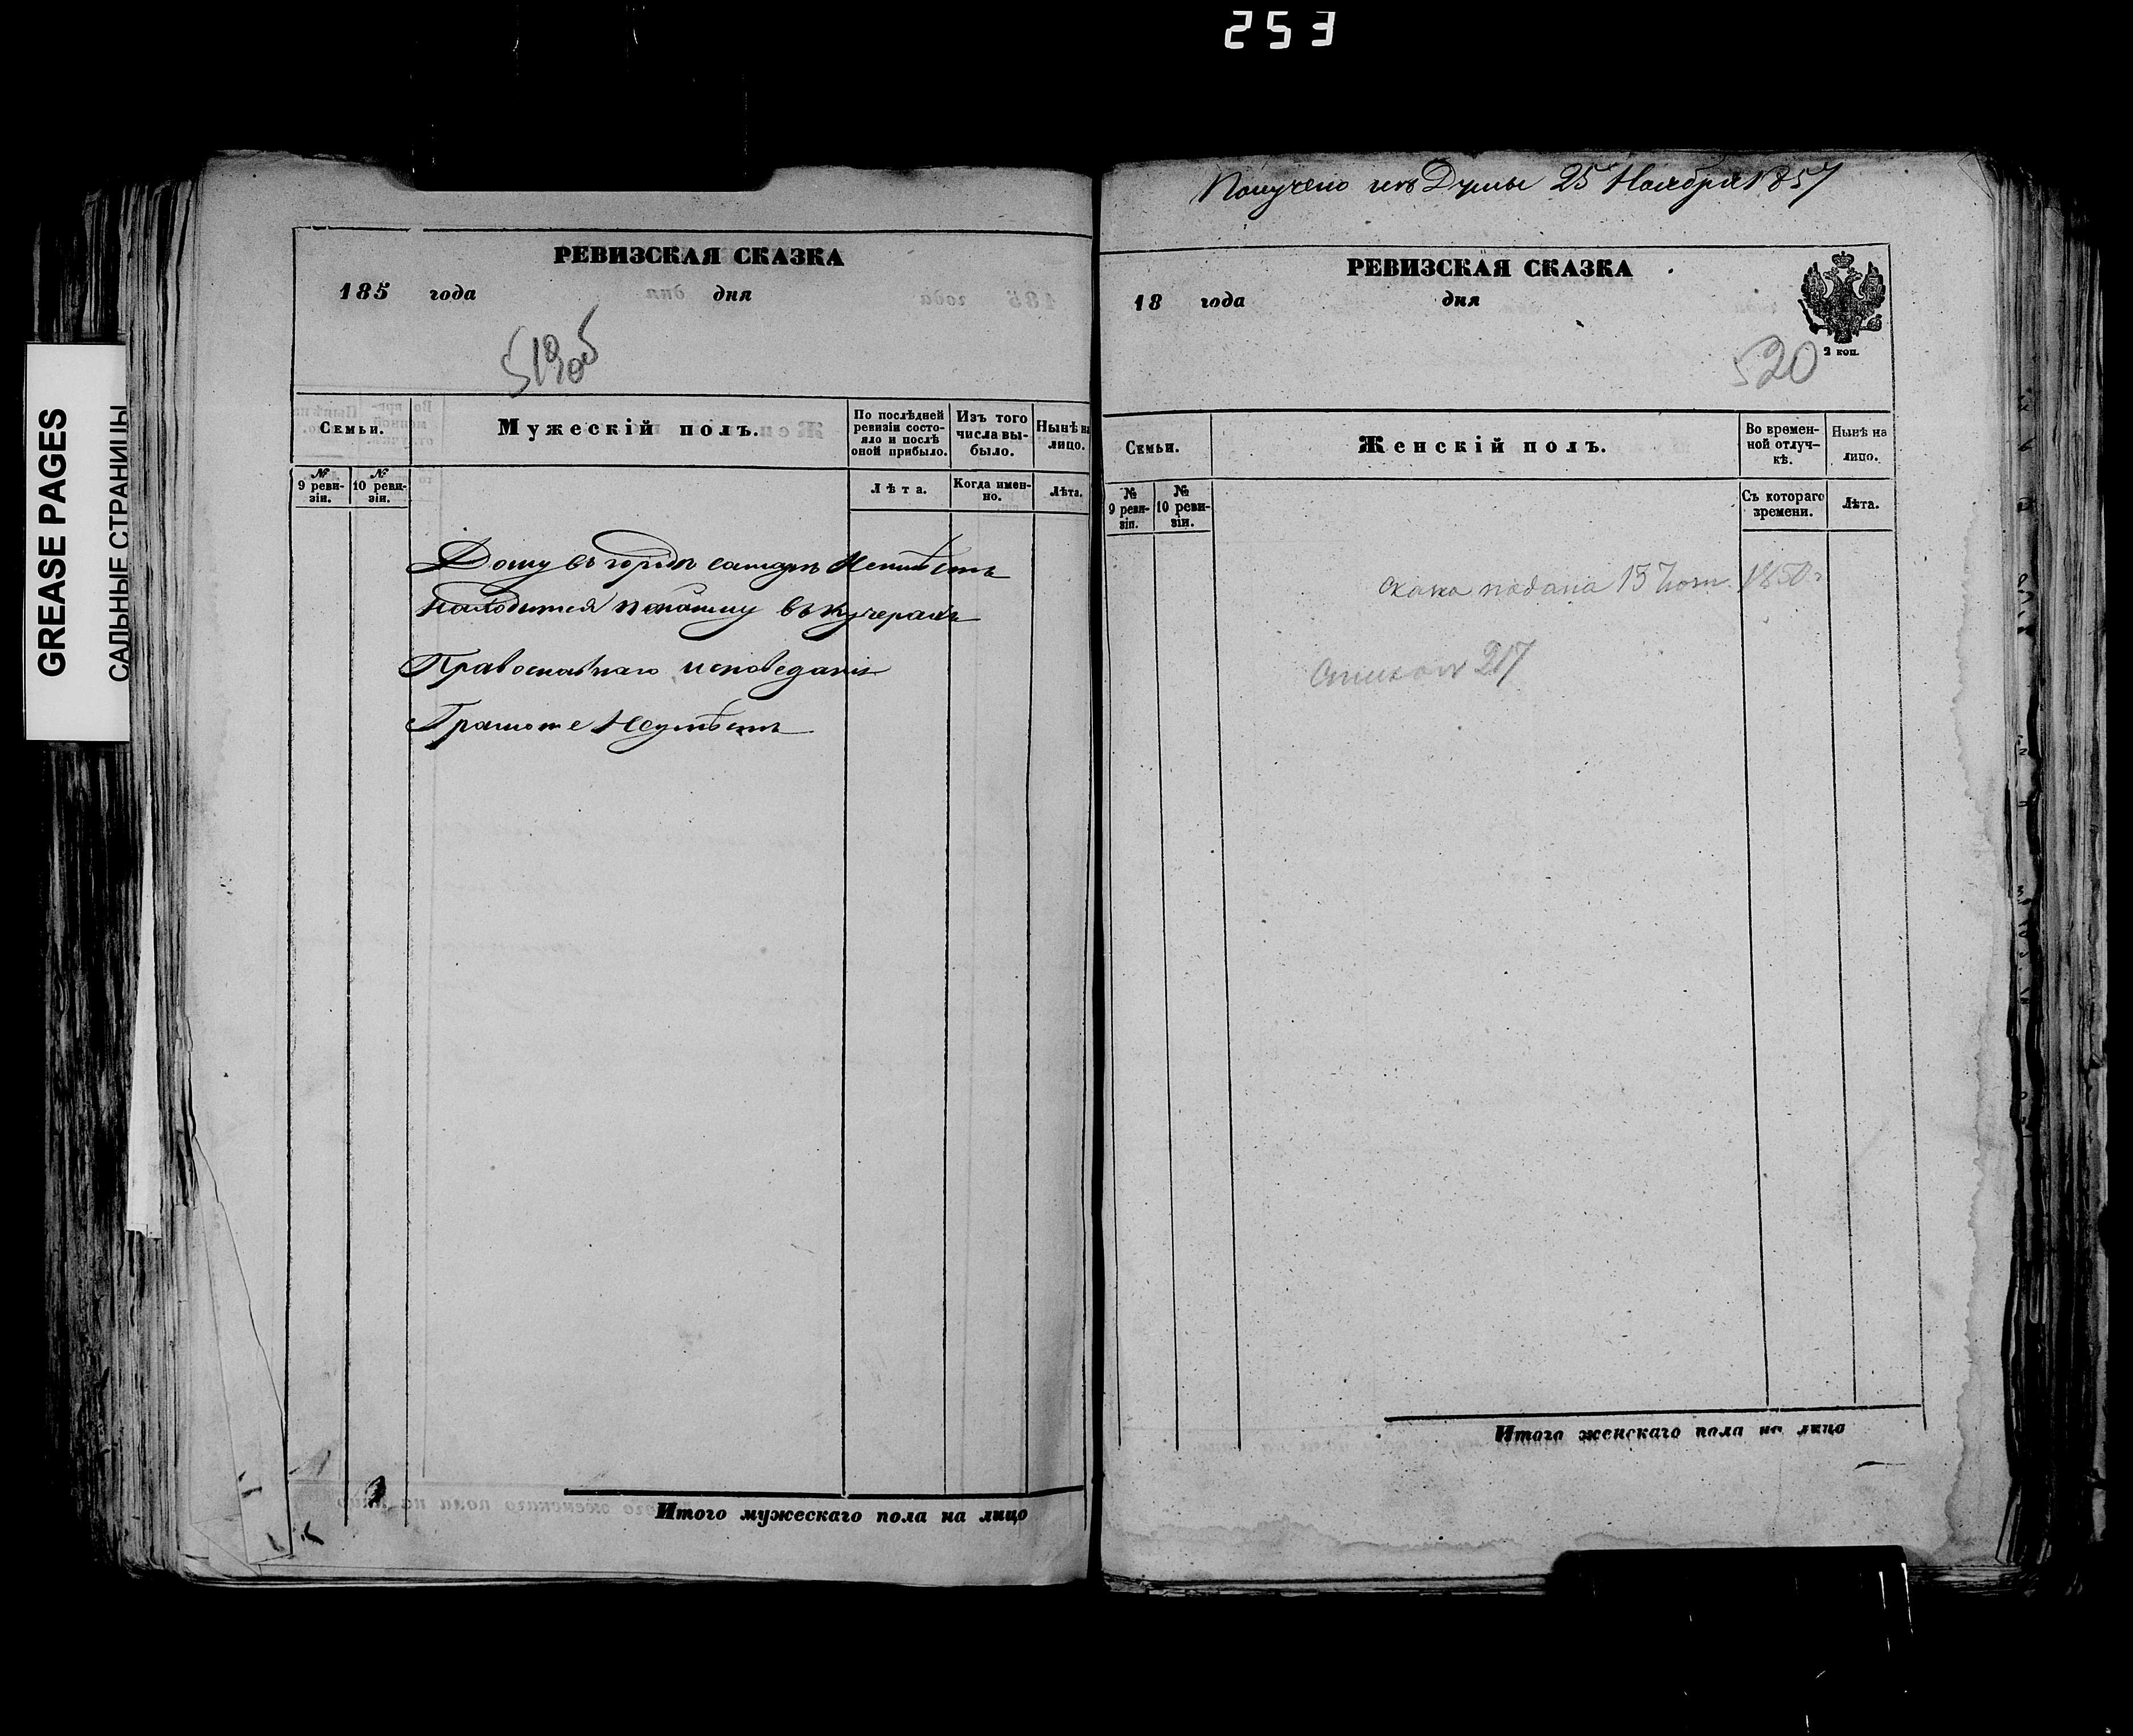 253
GREASE PAGES
САЛЬНЫЕ СТРАНИЦЫ
РЕВИЗСКАЯ СКАЗКА
185 года дня
519об
Семьи.
Мужескій полъ.
По послѣдней ревизіи состояло и послѣ оной прибыло.
Изъ того числа выбыло.
Нынѣ на лицо.
№ 9 ревизіи.
№ 10 ревизіи.
Лѣта.
Когда именно.
Лѣта.
Дому въ городе самаре Неимѣетъ
находится въ кучерахъ
Православнаго исповеданія
Грамоте Неумѣетъ
Итого мужескаго пола на лицо
Получено изъ Думы 25 Ноября 1857
РЕВИЗСКАЯ СКАЗКА
18 года дня
2 коп.
520
Семьи.
Женскій полъ.
Во временной отлучкѣ.
Нынѣ на лицо.
№ 9 ревизіи.
№ 10 ревизіи.
Съ котораго времени.
Лѣта.
подана 15 1850 г
217
Итого женскаго пола на лицо